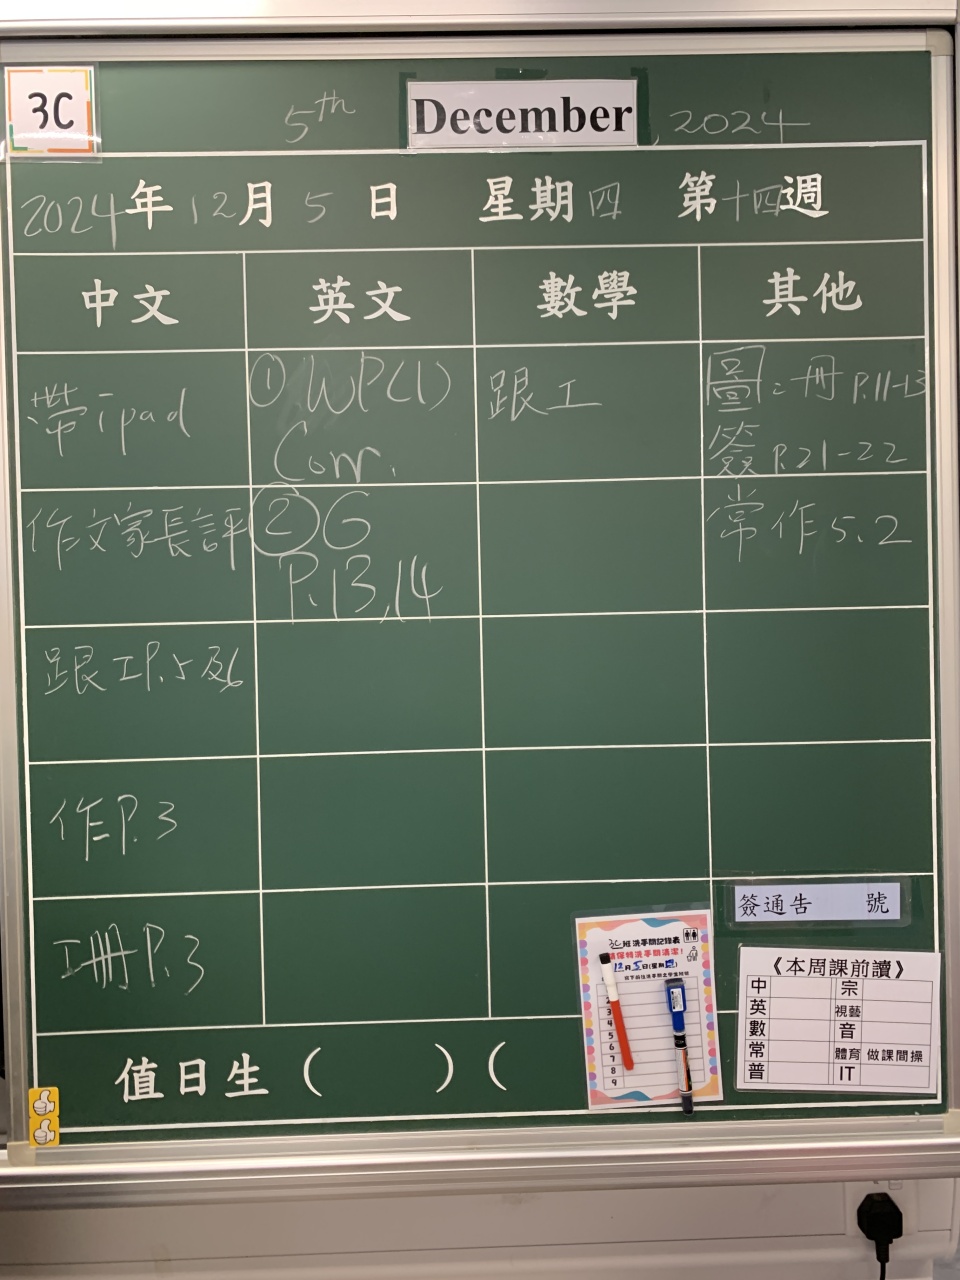 3C
5th December, 2024
2024年12月5日 星期四 第十四週
中文 英文 數學 其他
帶ipad
①.WP(1)
Corr.
跟工
圖二冊 P.11-13
簽 P.21-22
作文家長評
②G
P.13,14
常作5.2
跟工P.5及6
作P.3
工冊P.3
簽通告 號
值日生( )(
3C班洗手間記錄表
請保持洗手間清潔!
12月5日(星期四)
3
4
5
6
7
8
9
《本周課前讀》
中 宗
英 視藝
數 音
常 體育 做課間操
普 IT